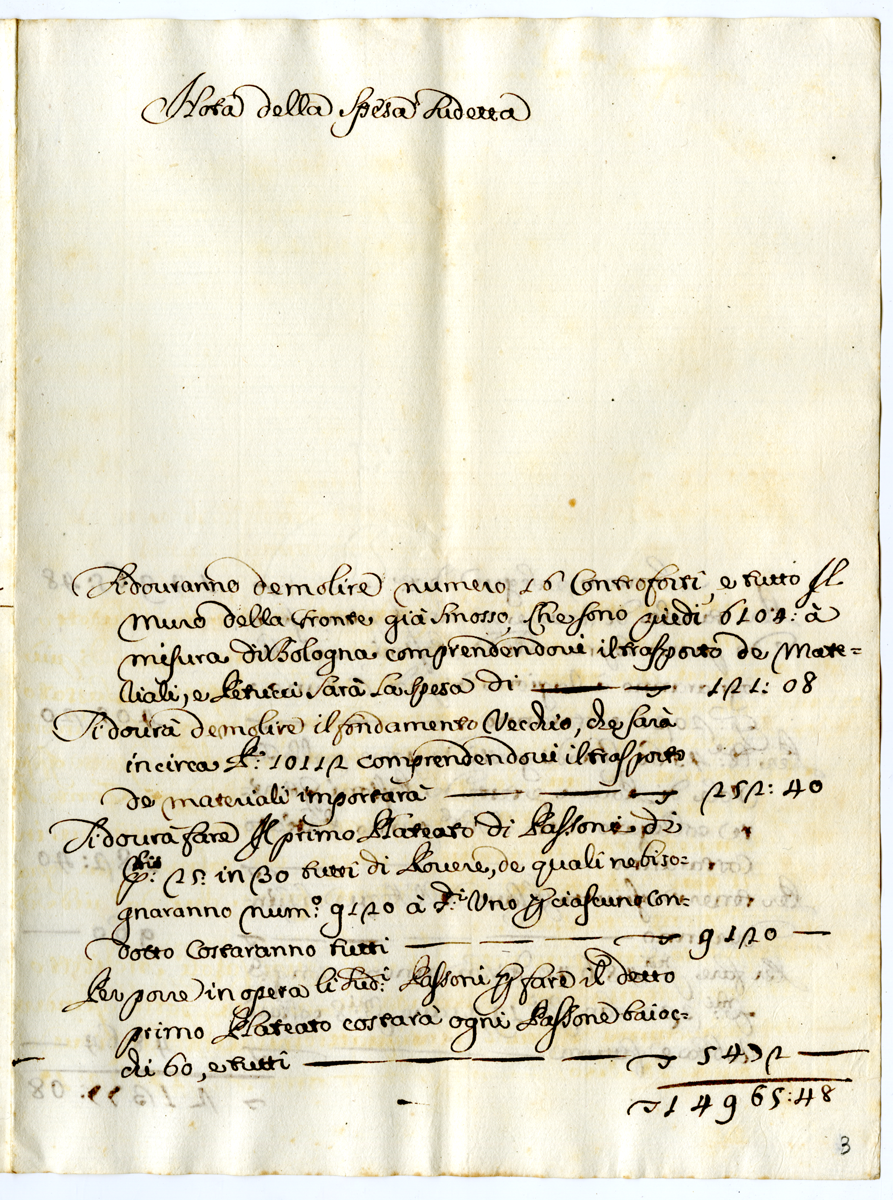 Nota della Spesa Sudetta
Si douranno demolire numero 16 Controforti, e tutto Il
muro della fronte già smosso, che sono piedi 6104: à
misura di Bologna comprendendoui il trasporto de Mate=
riali, e sarà La spesa di 121: 08
Si dourà demolire il fondamento Vecchio, che sarà
incirca P.i 10112 comprendendoui il trasporto
de materiali importarà 252: 40
Si dourà fare Il primo Plateato di Passoni di
25. in 30 tutti di Rouere, de quali ne biso=
gnaranno num.o 9120 à Uno p ciascuno Con=
dotto Costaranno tutti 9120 —
Per porre in opera li Sud.i Passoni p fare il detto
primo Plateato costarà ogni Passone baioc=
chi 60, e tutti 5472 —
14965:48
3